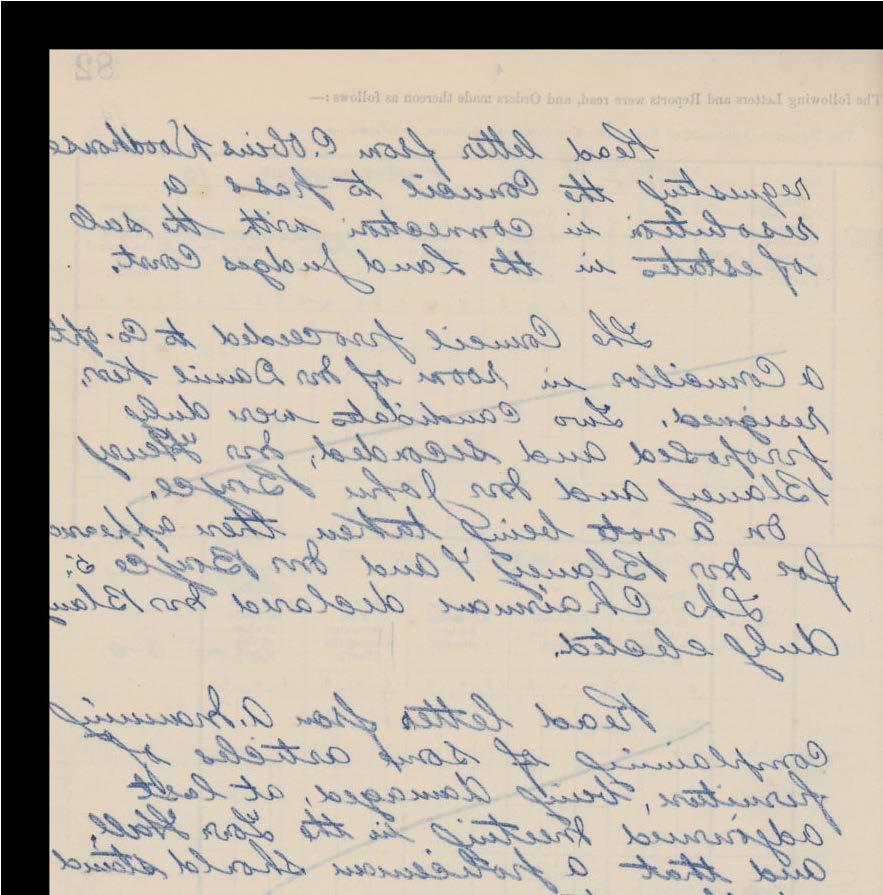 82
The following Letters and Reports were read, and Orders made thereon as follows :—
Read letter from C. Obins Woodhouse
requesting the Council to pass a
resolution in connection with the sale
of estates in the Land Judges Court.
The Council proceeded to Co-opt
a Councillor in room of Mr Daniel
resigned. Two Candidates were duly
proposed and seconded, Mr Henry
Blaney and Mr John Boyce.
On a vote being taken there appeared
for Mr Blaney 7 and Mr Boyce 5.
The Chairman declared Mr Blaney
duly elected.
Read letter from A. Manning
complaining of some articles of
furniture, being damaged, at last
adjourned meeting in the Town Hall,
and that a policeman should stand